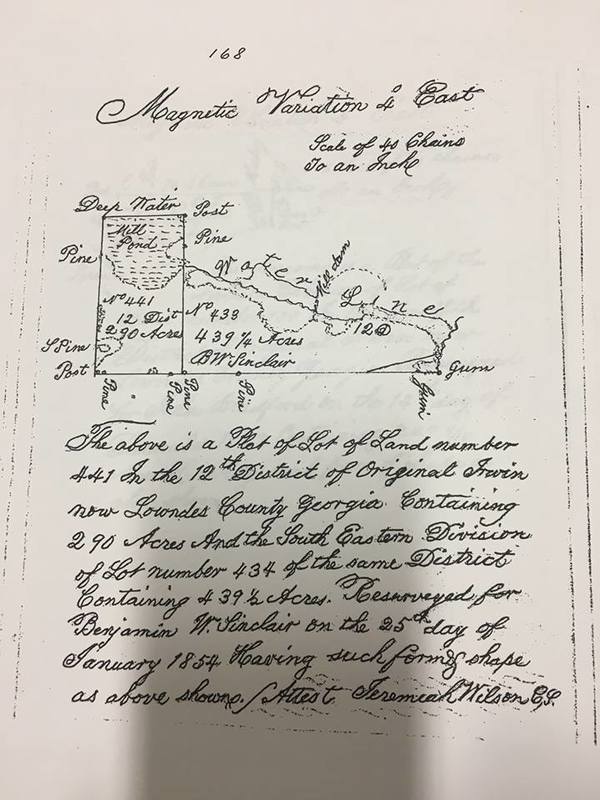 168
Magnetic Variation 4° East
Scale of 40 Chains
To an Inch
Deep Water Post
Mill
Pond
Pine
Pine
Water
Mill dam
Line
No 441
12 Dist
290 Acres
No 433
439 1/4 Acres
BW Sinclair
12 D
S Pine
Post
Pine
Pine
Pine
Pine
Gum
Gum
The above is a Plat of Lot of Land number
441 In the 12th District of Original Irwin
now Lowndes County Georgia Containing
290 Acres And the South Eastern Division
of Lot number 434 of the same District
Containing 439 1/2 Acres. Resurveyed for
Benjamin W. Sinclair on the 25th day of
January 1854 Having such form & shape
as above shown. / Attest Jeremeah Wilson C.S.